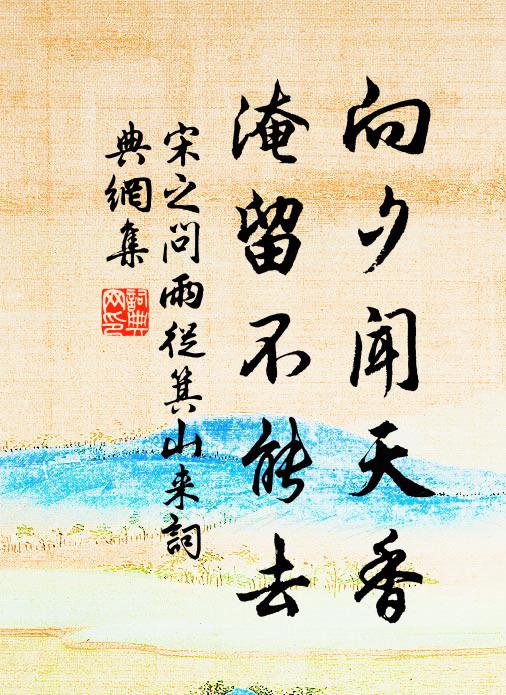 向夕闻天香
淹留不能去
宋之问雨從箕山来詞
典網集
詞典
网印